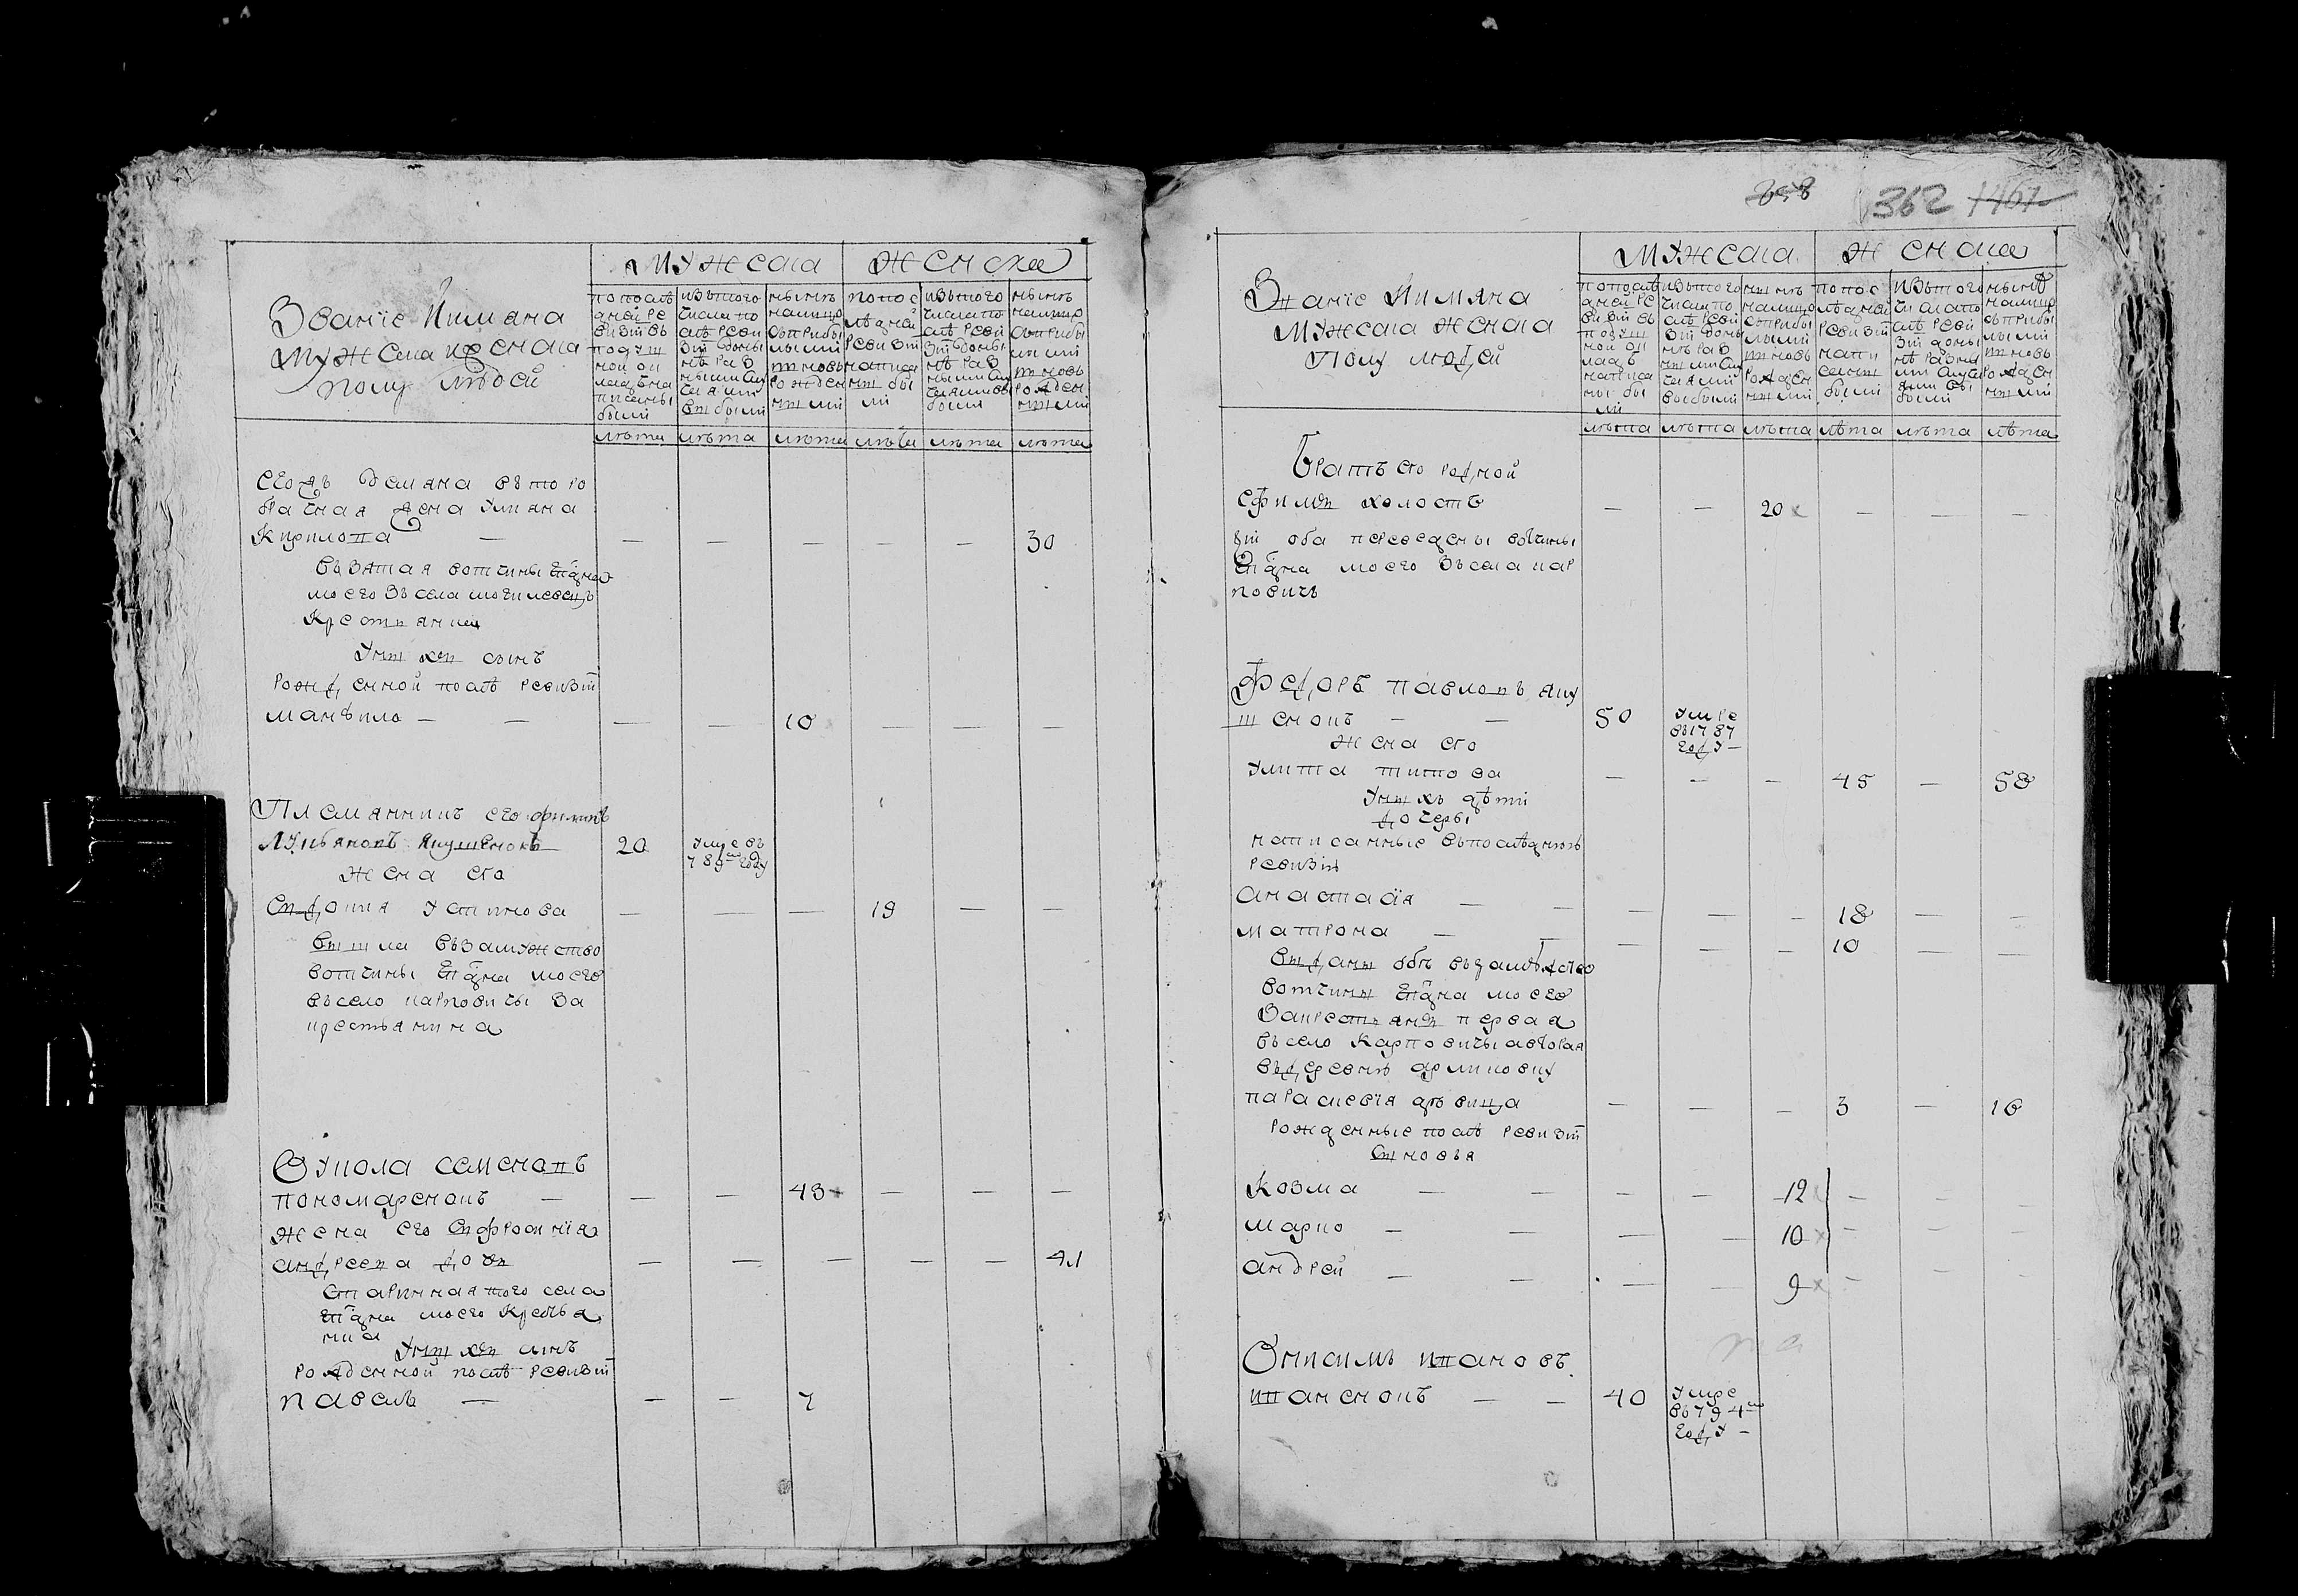 Званïе Иимяна
Мужеска иженска
полу людей
Мужеска
Женска
попослѣ
дней ре
визïи въ
подуш
ной ок
ладъ на
писаны
были
изътого
числа по
слѣ реви
зïи воны
мѣ раз
ными слу
чаями
выбыли
нынѣ
налицо
съприбы
лыми
ивновь
рожден
ными
попос
лѣдней
ревизïи
написа
ны бы
ли
изътого
числа по
слѣ реви
зïи воны
мѣ раз
ными слу
чаямивы
были
нынѣ
налицо
съприбы
лыми
ивновь
рожден
ными
лѣта лѣта лѣта лѣта лѣта лѣта
Его жъ Демяна въторо
брачная жена Уляна
Кирилова — — — — — — 30
Възятая вотчины Егоже
моего Зъсела могилевецъ
Крестьянка
Уних сынъ
рожденной послѣ ревизïи
Манѣйло — — — — 10 — — —
Племянникъ его филипъ
Лукьяновъ Якушенокъ 20 умре въ
789м году
Жена его
Евдокия Устинова — — — 19 — —
Вышла въ замужство
вотчины моего
въсело карповичы за
крестьянина
Вукола Семеновъ
пономаренокъ — — — 43 — — —
жена его Ефросинïя
андреева дочь — — — — — 41
Старинная того села
моего Крестья
нка
Уних сынъ
рожденной послѣ ревизïи
павелъ — — — 7
362 1461
Званïе Иимяна
Мужеска Женска
Полу людей
Мужеска
Женска
попослѣ
дней ре
визïи въ
подуш
ной ок
ладъ
написа
ны бы
ли
изътого
числа по
слѣ реви
зïи воны
мѣ раз
ными слу
чаями
выбыли
ныннѣ
налицо
съприбы
лыми
ивновь
рожден
ными
попос
лѣдней
ревизïи
напи
саны
были
изътого
числа по
слѣ реви
зïи воны
мѣ разны
ми случа
ями вы
были
нынѣ
налицо
съприбы
лыми
ивновь
рожден
ными
лѣта лѣта лѣта лѣта лѣта лѣта
Братъ его родной
Ефимъ холостъ — — 20 — — —
оба переведены вотчины
моего Зъсела кар
повичъ
Федоръ Павловъ яку
шенокъ — — 50 умре
въ1787
году —
Жена его
Улита титова — — — 45 — 58
Унихъ дѣти
дочеры
написанные въпослѣднюю
ревизïю
Анастасïя — — — — — 18 — —
Матрона — — — — — 10 — —
Выданы обѣ възамужство
вотчины моего
Закрестьянъ первая
въсело Карповичы авторая
въдеревню ярликовку
параскевïя дѣвица — — — 3 — 16
рожденные послѣ ревизïи
Сыновья
Козма — — — — 12 — — —
Марко — — — — 10 — — —
Андрей — — — — 9 — — —
Онисимъ ивановъ
иваненокъ — — 40 умре
въ794м
году —